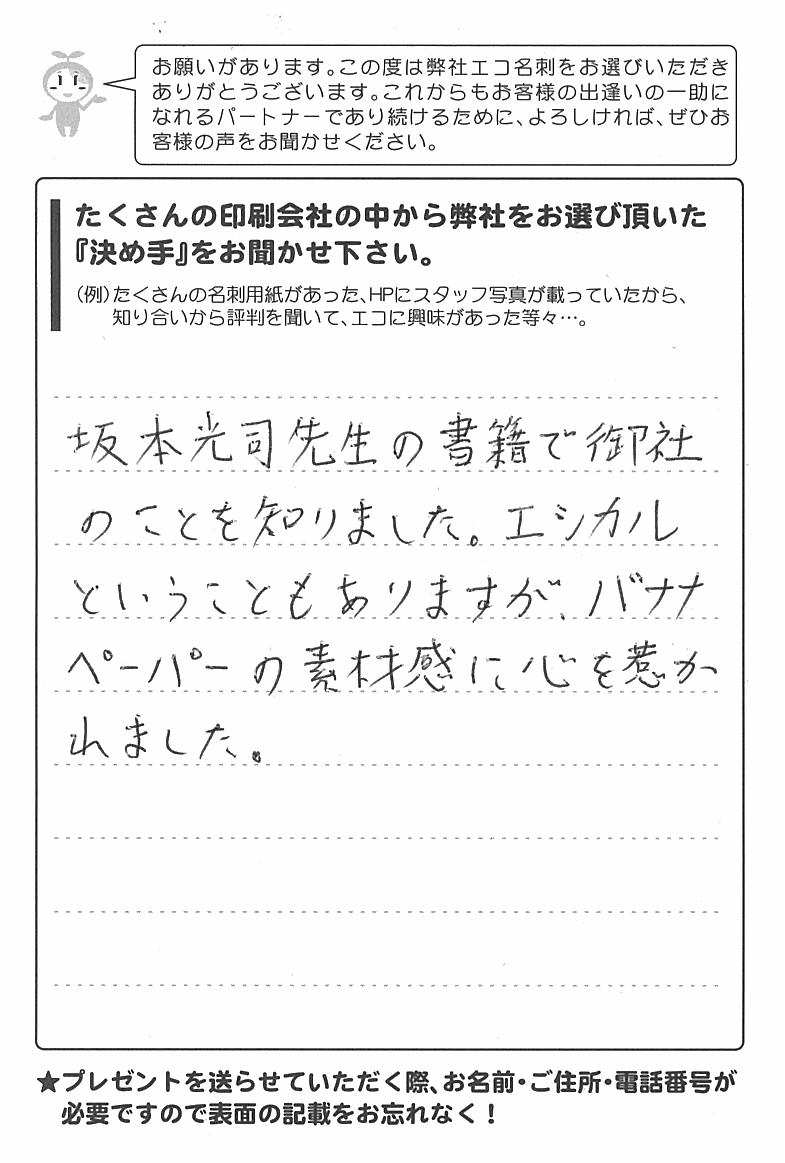 お願いがあります。この度は弊社エコ名刺をお選びいただき
ありがとうございます。これからもお客様の出逢いの一助に
なれるパートナーであり続けるために、よろしければ、ぜひお
客様の声をお聞かせください。
たくさんの印刷会社の中から弊社をお選び頂いた
『決め手』をお聞かせ下さい。
（例）たくさんの名刺用紙があった、HPにスタッフ写真が載っていたから、
知り合いから評判を聞いて、エコに興味があった等々…。
坂本光司先生の書籍で御社
のことを知りました。エシカル
ということもありますが、バナナ
ペーパーの素材感に心を惹か
れました。
★プレゼントを送らせていただく際、お名前・ご住所・電話番号が
必要ですので表面の記載をお忘れなく！